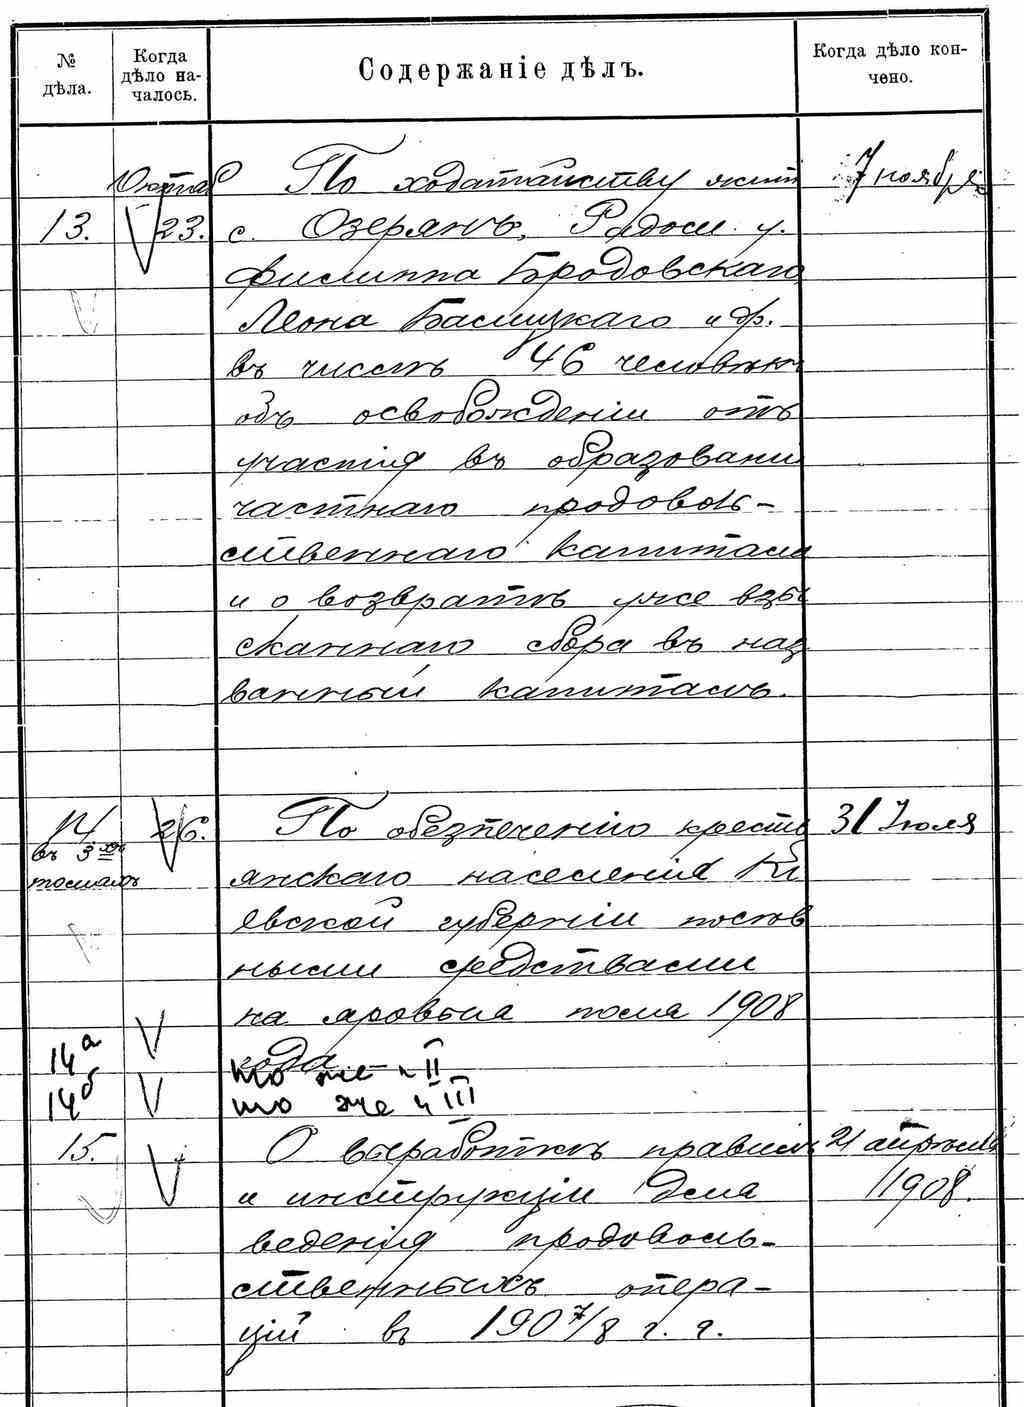 № дѣла.
Когда дѣло началось.
Содержаніе дѣлъ.
Когда дѣло кончено.
По ходатайству жит
7 ноября
13.
23.
с. Озерянъ, Радом. у.
Филиппа Бродовскаго
Леона
и др.
въ числѣ 46 человѣкъ
объ освобожденіи отъ
участія въ образовани
частнаго продоволь-
ственнаго капитала
и о возвратѣ уже взы
сканнаго сбора въ наз
ванный капиталъ.
14
въ 3хъ
томахъ
26.
По обезпеченію кресть
31 Іюля
янскаго населенія Кі
евской губерніи посѣв
ными средствами
на яровыя поля 1908
года
14а
то же ч II
14б
то же ч III
15.
О выработкѣ правилъ
21 апрѣля
и инструкціи для
1908.
веденія продоволь-
ственныхъ опера-
цій въ 1907/8 г. г.